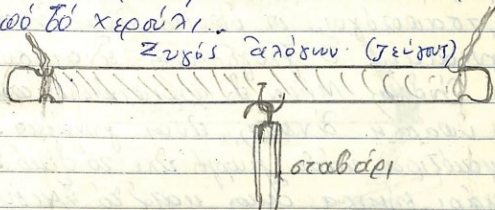 πό τό χερούλι..
Ζυγός ἀλόγων (ζεύγους)
σταβάρι